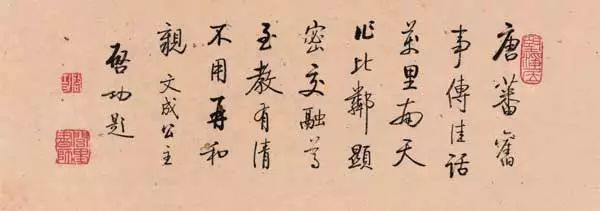 唐蕃舊
事傳佳話
萬里南天
作比鄰顯
密交融尊
至教有情
不用再和
親 文成公主
啓功題